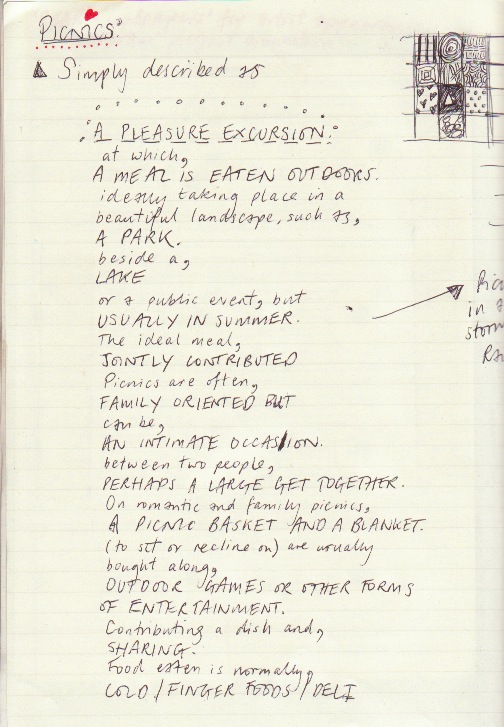 PICNICS:
Simply described as
A PLEASURE EXCURSION:
at which,
A MEAL IS EATEN OUTDOORS.
ideally taking place in a
beautiful landscape, such as,
A PARK.
beside a,
LAKE
or a public event, but
USUALLY IN SUMMER.
The ideal meal,
JOINTLY CONTRIBUTED
Picnics are often,
FAMILY ORIENTED BUT
can be,
AN INTIMATE OCCASION.
between two people,
PERHAPS A LARGE GET TOGETHER.
On romantic and family picnics,
A PICNIC BASKET AND A BLANKET.
(to sit or recline on) are usually
bought along,
OUTDOOR GAMES OR OTHER FORMS
OF ENTERTAINMENT.
Contributing a dish and,
SHARING.
Food eaten is normally,
COLD / FINGER FOODS / DELI
Pic
in a
storm
Ra